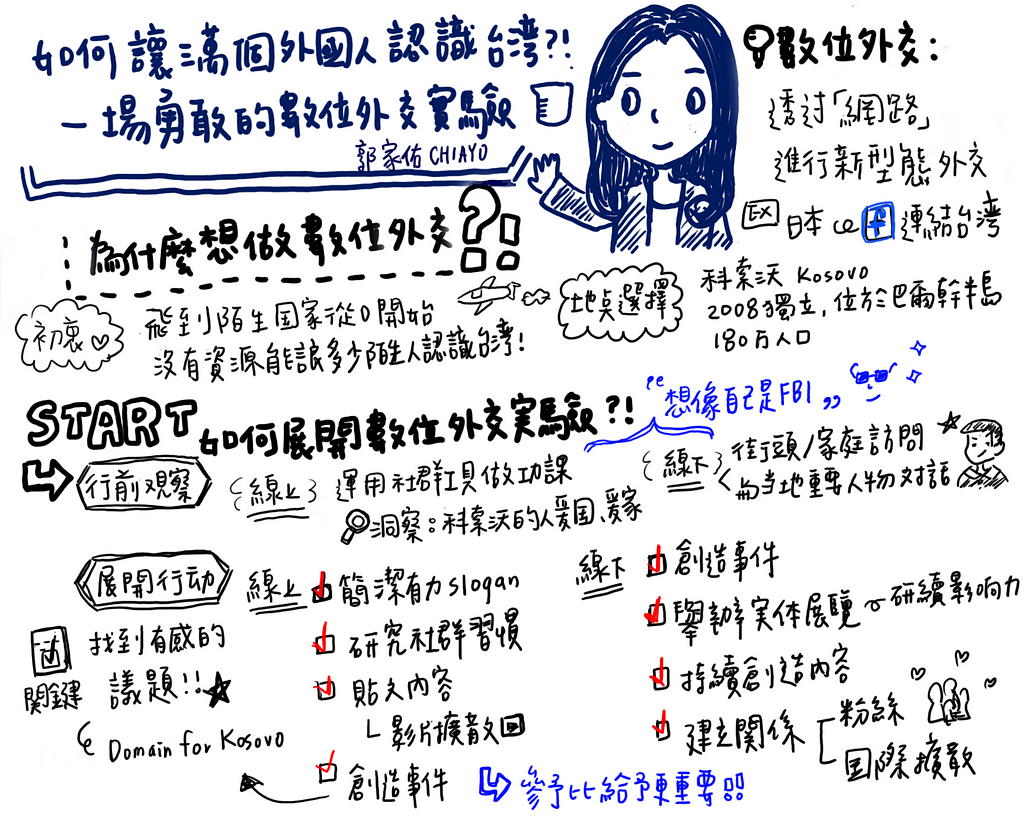 如何讓三萬個外國人認識台灣?!
一場勇敢的數位外交實驗
郭家佑 CHIAYO
數位外交:
透过「網路」
進行新型態外交
EX 日本 f 連結台灣
為什麼想做數位外交?!
初衷
飛到陌生国家從0開始
沒有資源能讓多少陌生人認識台灣!
地點選擇
科索沃 Kosovo
2008獨立,位於巴爾幹半島
180万人口
START 如何展開數位外交実驗?!
"想像自己是FBI"
行前观察
(線上)
運用社群工具做功課
洞察:科索沃的人愛国、愛家
(線下)
街頭/家庭訪問
与当地重要人物对話
展開行动
線上
簡潔有力slogan
研究社群習慣
貼文内容
影片擴散
創造事件
関鍵
找到有感的
議題!!
Domain for Kosovo
線下
創造事件
舉辦実体展覽 研續影响力
持續創造内容
建立関係
粉絲
国際擴散
參予比給予更重要!!